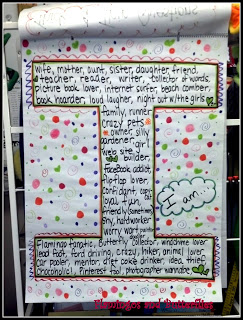 wife, mother, aunt, sister, daughter, friend,
teacher, reader, writer, collector of words,
picture book lover, internet surfer, beach comber,
book hoarder, loud laugher, night out w/the girls
family, runner
crazy pets
owner, silly
gardener, girl
web site
builder,
facebook addict,
flipflop lover,
confidant, copy
cat
loyal, fun,
friendly (sometimes)
shy, hardworker
worry wart
I am...
Flamingo fanatic, Butterfly collector, windchime lover
lead foot, ford driving, crazy, hiker, animal lover
car pooler, mentor, diet coke drinker, idea thief
chocoholic, Pinterest fool, photographer wannabe
Flamingos and Butterflies